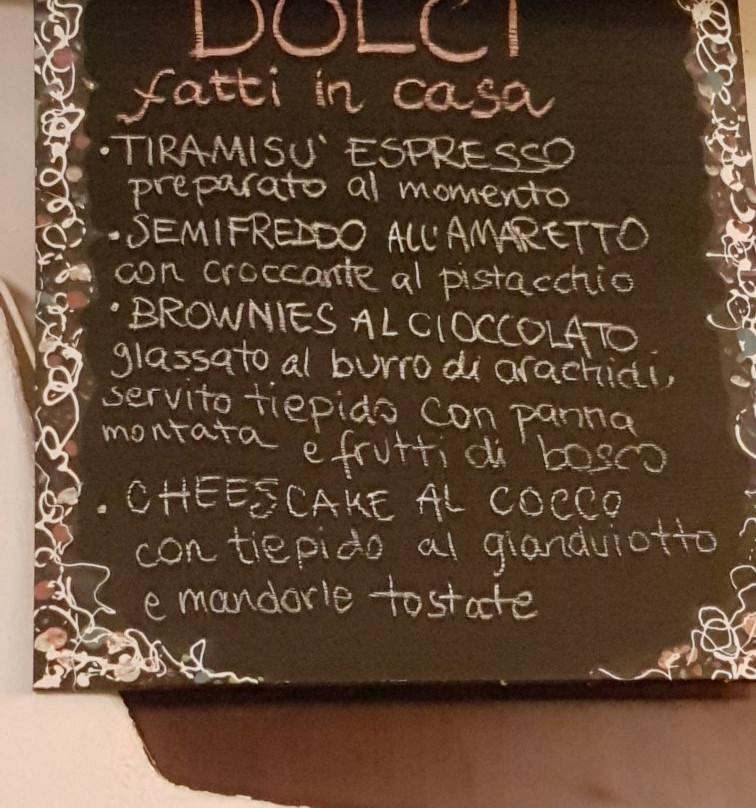 DOLCI
fatti in casa
• TIRAMISU' ESPRESSO
preparato al momento
• SEMIFREDDO ALL'AMARETTO
con croccante al pistacchio
• BROWNIES AL CIOCCOLATO
glassato al burro di arachidi,
servito tiepido con panna
montata e frutti di bosco
• CHEESCAKE AL COCCO
con tiepido al gianduiotto
e mandorle tostate